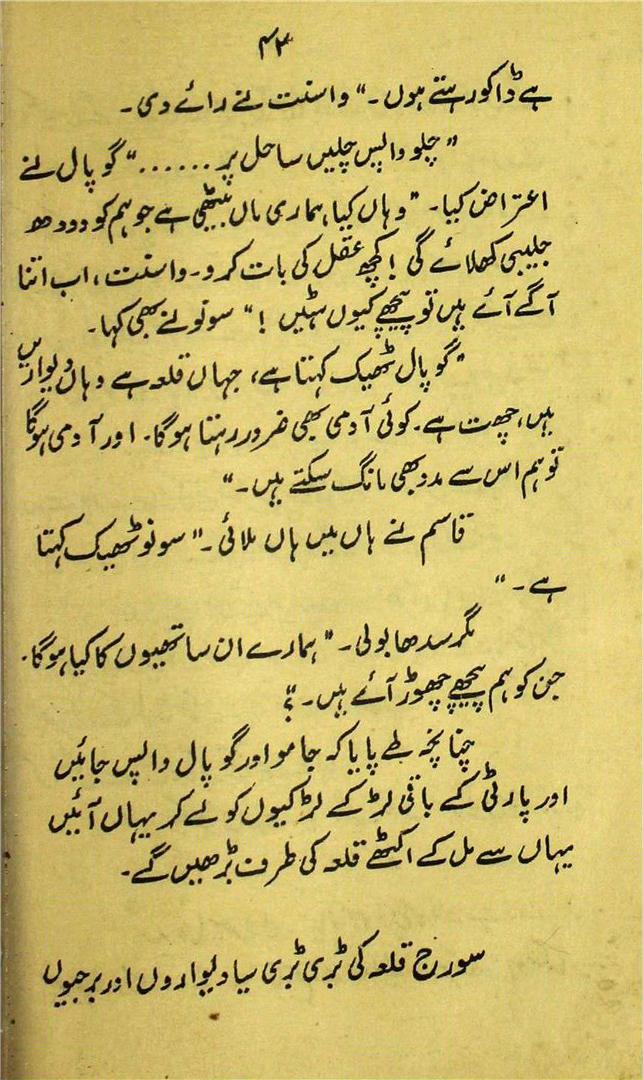 ۴۳
ہے ڈاکو رہتے ہوں۔" واسنت نے رائے دی۔
"چلو واپس چلیں ساحل پر ......" گوپال نے
اعتراض کیا۔ "وہاں کیا ہماری ماں بیٹھی ہے جو ہم کو دودھ
جلیبی کھلائے گی ! کچھ عقل کی بات کرو۔ واسنت، اب اتنا
آگے آئے ہیں تو پیچھے کیوں ہٹیں !" سونو نے بھی کہا۔
"گوپال ٹھیک کہتا ہے، جہاں قلعہ ہے وہاں دیواریں
ہیں، چھت ہے۔ کوئی آدمی بھی ضرور رہتا ہوگا۔ اور آدمی ہوگا
تو ہم اس سے مدد بھی مانگ سکتے ہیں۔"
قاسم نے ہاں میں ہاں ملائی۔ "سونو ٹھیک کہتا
ہے۔"
مگر سدھا بولی۔ "ہمارے ان ساتھیوں کا کیا ہوگا۔
جن کو ہم پیچھے چھوڑ آئے ہیں۔"؟
چنانچہ طے پایا کہ جامو اور گوپال واپس جائیں
اور پارٹی کے باقی لڑکے لڑکیوں کو لے کر یہاں آئیں
یہاں سے مل کے اکٹھے قلعہ کی طرف بڑھیں گے۔
سورج قلعہ کی بڑی بڑی سیاہ دیواروں اور برجیوں